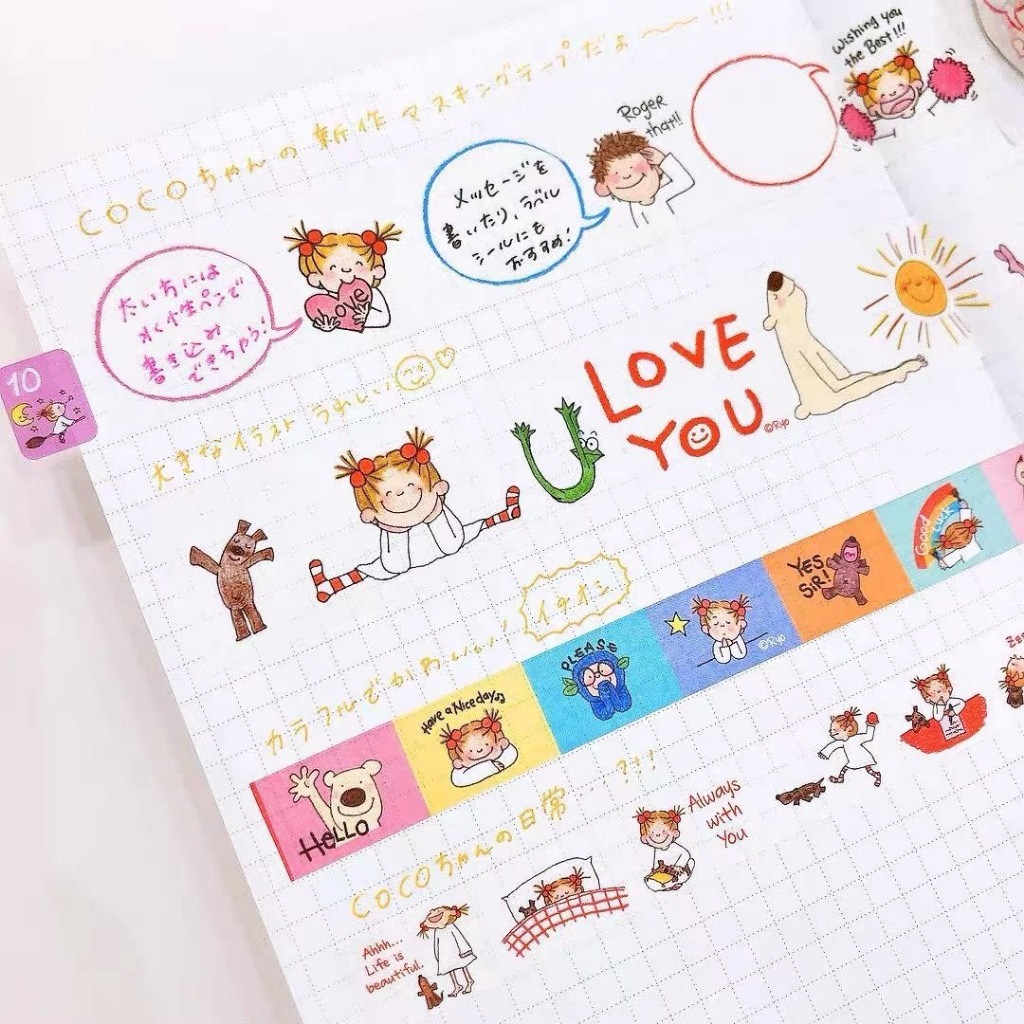 COCOちゃんの新作マスキングテープだよ〜〜!!!
Wishing you
the Best!!!
Roger
that!!
メッセージを
書いたり、ラベル
シールにも
おすすめ!
Love
水性ペンで
書き込み
できちゃう!
10
大きなイラスト うれしい
U LOVE
YOU
©Ryo
イチオシ
カラフルでかわいい!
HELLO
Have a Nice day
PLEASE
©Ryo
YES
SIR!
Good
Luck
COCOちゃんの日常…?!!
Ahhh...
Life is
beautiful.
Always
with
You